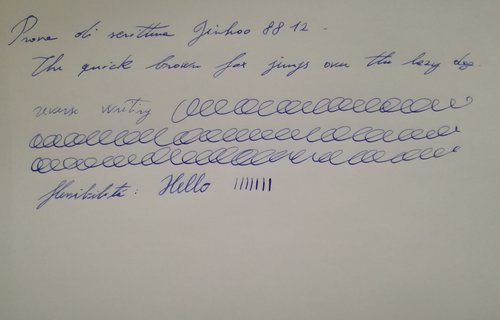 Prova di scrittura Jinhao 8812.
The quick brown fox jumps over the lazy dog.
reverse writing
flessibilità: Hello